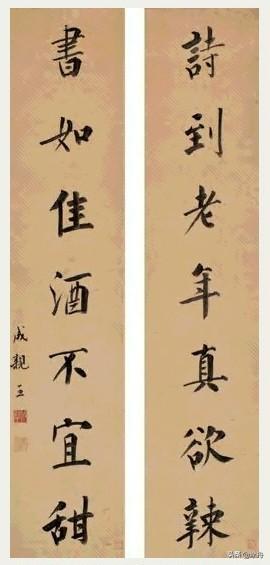 詩到老年真欲辣
書如佳酒不宜甜
成親王